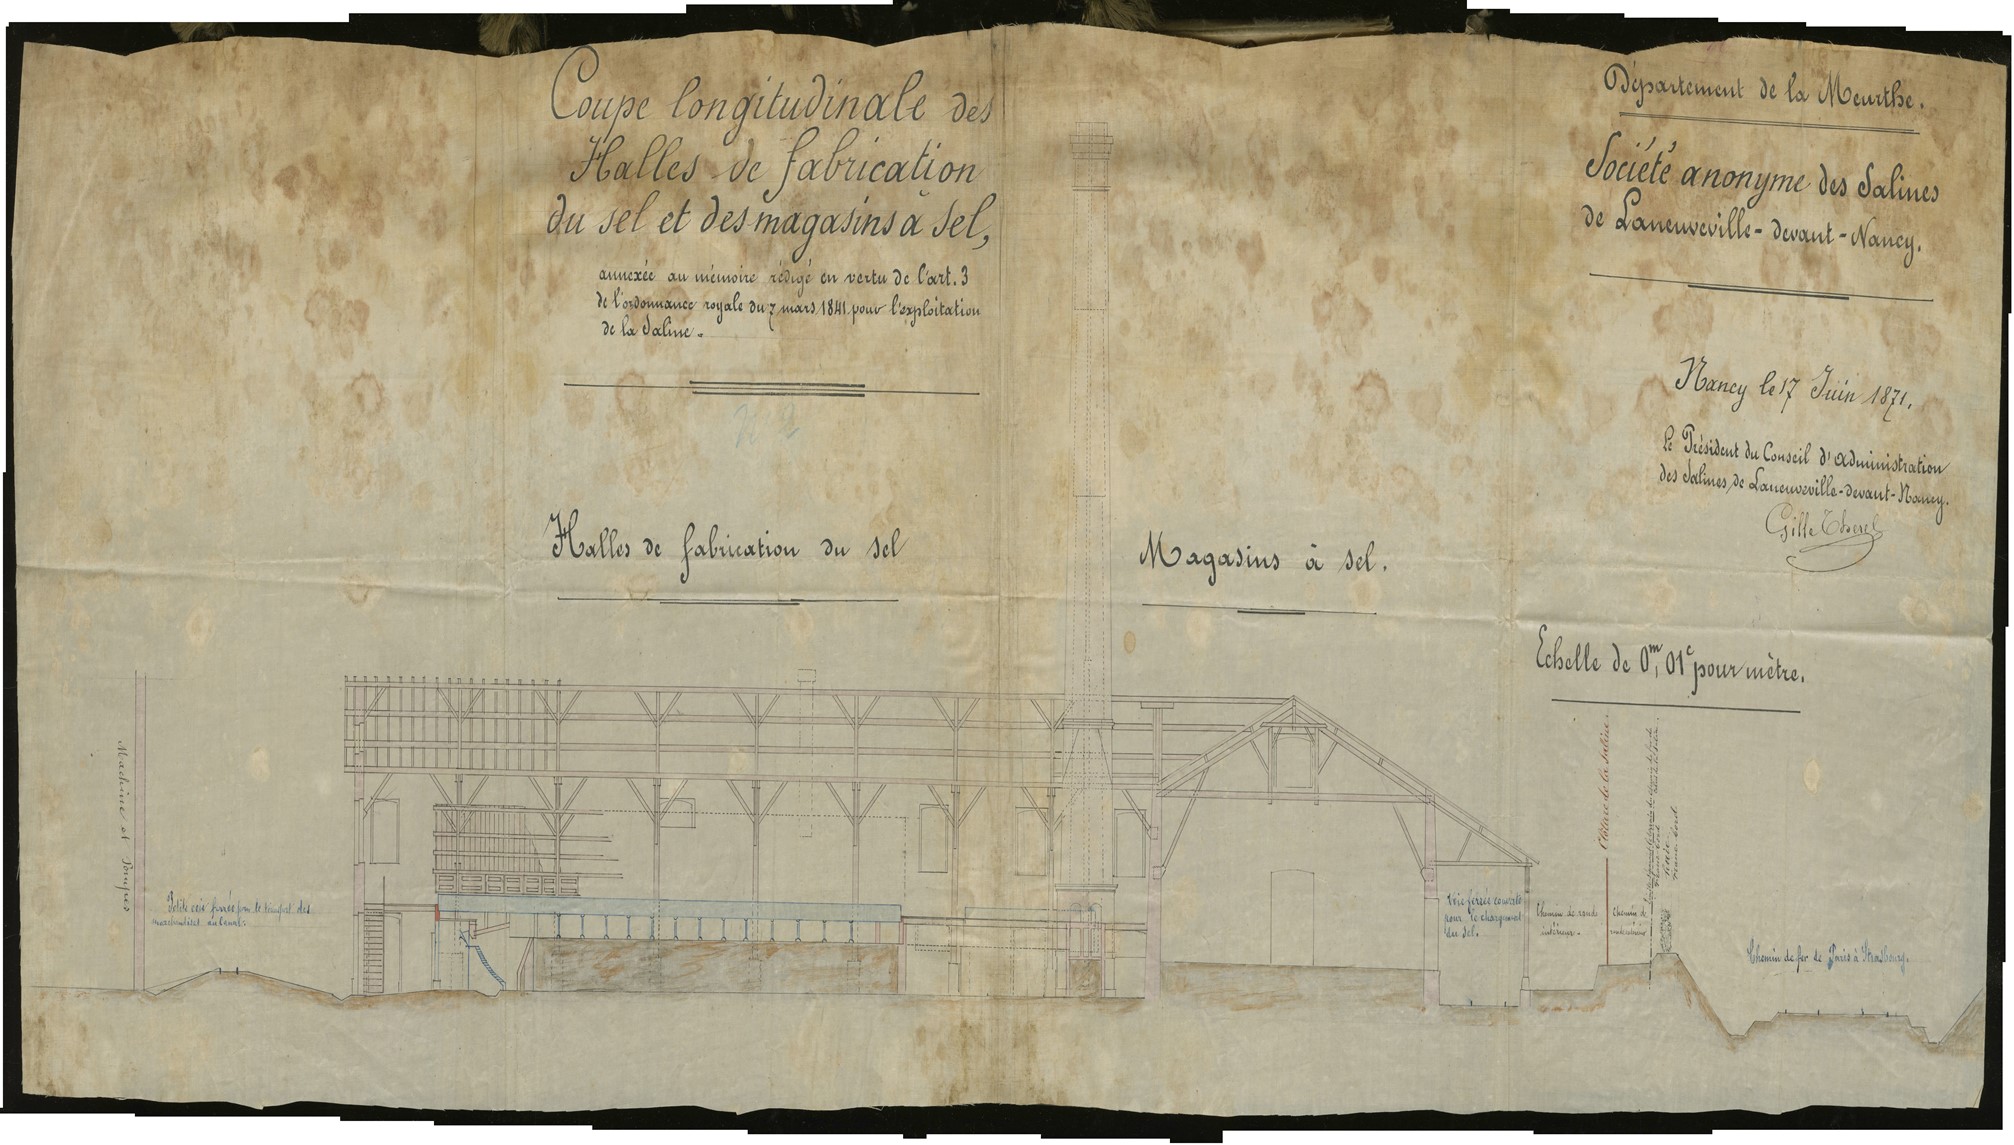 Coupe longitudinale des
Halles de fabrication
du sel et des magasins à sel,
annexée au mémoire rédigé en vertu de l'art. 3
de l'ordonnance royale du 7 mars 1841 pour l'exploitation
de la Saline.
N 2
Département de la Meurthe.
Société anonyme des Salines
de Laneuveville-devant-Nancy.
Nancy le 17 Juin 1871.
Le Président du Conseil d'administration
des Salines de Laneuveville-devant-Nancy.
Gille
Halles de fabrication du sel
Magasins à sel.
Echelle de 0m,01c pour mètre.
Machine et Pompes
Petite voie ferrée pour le transport des
marchandises au Canal.
Voie ferrée couverte
pour le chargement
du sel.
Chemin de ronde
intérieur.
Chemin de
Clôture de la Saline.
Haie
Chemin de fer de Paris à Strasbourg.